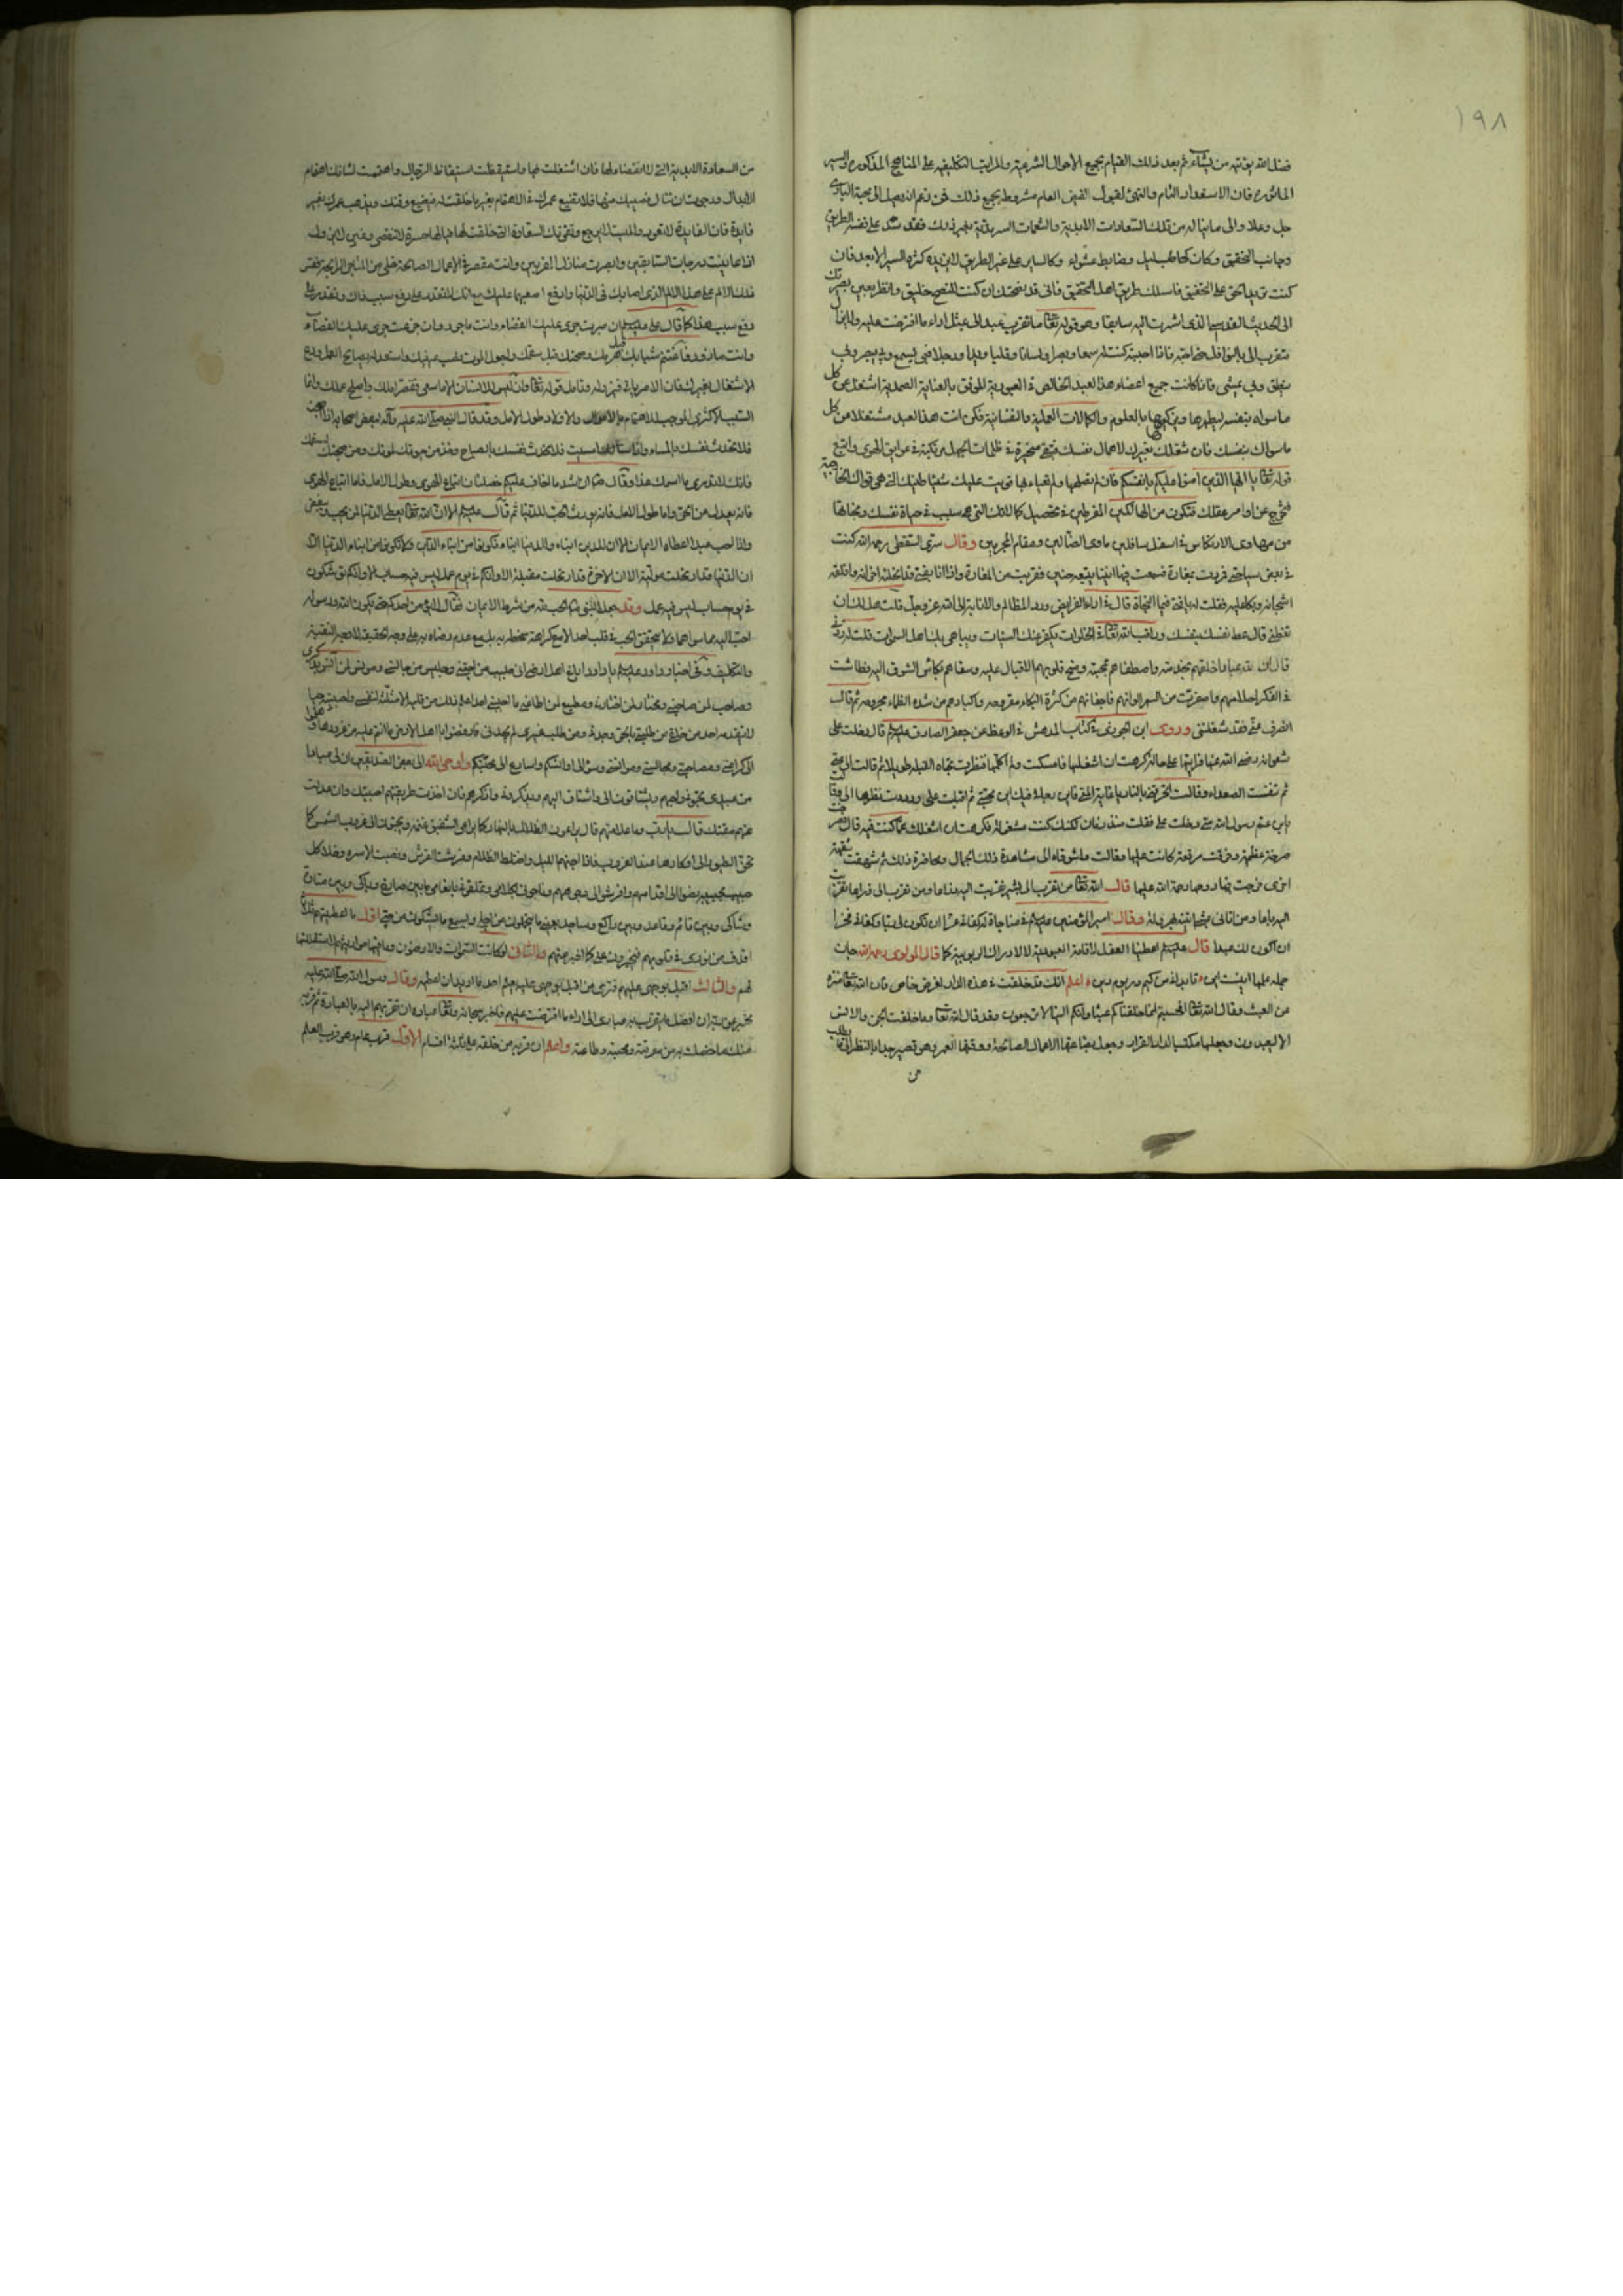 ١٩٨
فضل الله يؤتيه من يشاء ثم بعد ذلك القيام بجميع الاحوال الشرعية والمراتب التكليفيه على المناهج المذكوره والسير
الماثوره فان الاستعداد التام والتهيئ لقبول الفيض العام مشروط بجميع ذلك فمن زعم انه وصل الى محبة البارى
جل وعلا والى ما يناله من تلك السعادات الابدية والنعمات السرمدية بغير ذلك فقد سد على نفسه الطريق
وجانب التحقيق وكان كحاطب ليل وخابط عشواء وكالساير على غير الطريق لا يزيده كثرة السير الا بعدا فان
كنت تريد الحق على التحقيق فاسلك طريق اهل التحقيق فانى قد نصحتك ان كنت للنصح خليق وانظر بعين بصيرتك
الى الحديث القدسى الذى اشرت اليه سابقا وهو قوله تعالى ما تقرب عبد الى بمثل اداء ما افترضت عليه ولا يزال
يتقرب الى بالنوافل حتى احبه فاذا احببته كنت له سمعا وبصرا ولسانا وقلبا ويدا ورجلا فبى يسمع وبى يبصر وبى
ينطق وبى يمشى فاذا كانت جميع اعضاء هذا العبد الخالص فى العبودية الموفق بالعناية الصمدية اشتغل عن كل
ما سواه بنفسه ليطهرها ويزكيها بالعلوم والكمالات العملية والنفسانية فكن انت هذا العبد مشتغلا عن كل
ما سواك بنفسك فان شغلك بغيرك لاهمال نفسك فتبقى متحيرة فى ظلمات الجهل مرتكبة فى عوايق الهوى واتبع
قوله تعالى يا ايها الذين آمنوا عليكم بانفسكم فان لم تصلحها ولم
فتخرج عن اوامر عقلك فتكون من الهالكين المفرطين فى تحصيل كمالاتك التى هى سبب فى حياة نفسك ونجاتها
من مهاوى الارتكاس فى اسفل سافلين ماوى الضالين ومقام المجرمين وقال سرى السقطى رحمه الله كنت
فى بعض سياحتى فمررت بمغارة فسمعت فيها انينا يتبعه حنين فقربت من المغارة واذا انا بفتى قد انحلته احزانه واقلقه
اشجانه وبكا عليه فقلت له يا فتى فيما النجاة قال فى اداء الفرايض ورد المظالم والانابة الى الله عز وجل قلت هل لك ان
تعظنى قال عظ نفسك بنفسك وراقب الله تعالى فى الخلوات يكفر عنك السيات ويباهى بك اهل السموات قلت له زدنى
قال ان لله عبادا خلقهم لخدمته واصطفاهم لمحبته وفتح قلوبهم للاقبال عليه وسقاهم بكاس الشوق اليه فطاشت
فى الفكر احلامهم واصفرت من السهر الوانهم فاجفانهم من كثرة البكاء مقروحه واكبادهم من شده الظماء مجروحه ثم قال
انصرف عنى فقد شغلتنى وروى ابن الجوزى فى كتاب المدهش فى الوعظ عن جعفر الصادق عليه السلام قال دخلت على
شعوانه رضى الله عنها فرايتها على حالة كرهت ان اشغلها فامسكت ولم اكلمها فنظرت تجاه القبله طويلا ثم قالت الهى
ثم تنفست الصعداء وقالت اتحرقنى بالنار يا غاية المنى فاين رجائى فيك اين محبتى ثم اقبلت على ورددت نظرها الى
يا بن عم رسول الله متى دخلت على فقلت منذ زمان لكنك كنت مشغولة فكرهت ان اشغلك عما كنت فيه قال
صرخة عظيمة ومزقت مرقعة كانت عليها وقالت واشوقاه الى مشاهدة ذلك الجمال ومحاضرة ذلك ثم شهقت شهقة
اخرى خرجت بها روحها رحمة الله عليها قال الله تعالى من تقرب الى بشبر تقربت اليه ذراعا ومن تقرب الى ذراعا تقربت
اليه باعا ومن اتانى يمشى اتيته هرولة وقال امير المؤمنين عليه السلام فى مناجاة له كفانى عزا ان تكون لى ربا وكفانى فخرا
ان اكون لك عبدا قال عليه السلام اعطينا العقل لاقامة العبودية لا لادراك الربوبية كما قال المولوى رحمه الله
اعلم انك قد خلقت فى هذه الدار لغرض خاص فان الله تعالى منزه
عن العبث وقال الله تعالى افحسبتم انما خلقناكم عبثا وانكم الينا لا ترجعون وقد قال الله تعالى وما خلقت الجن والانس
الا ليعبدون وجعلها مكتسبا لدار القرار وجعل بضاعتها الاعمال الصالحة ووقتها العمر وهو قصير جدا بالنظر الى ما يطلب
من
من السعادة الابدية التى لا انقضاء لها فان اشتغلت بها واستيقظت استيقاظ الرجال واهتممت لشانك اهتمام
الابدال رجوت ان تنال نصيبك منها فلا تضيع عمرك فى الاهتمام بغير ما خلقت له فيضيع وقتك ويذهب عمرك بغير
فايدة فان الفايدة لا تعود والميت لا يرجع وتفوتك السعادة التى خلقت لها فيالها حسرة لا تنقضى وغبن لا يزول
اذا عاينت درجات السابقين وابصرت منازل المقربين وانت مقصر فى الاعمال الصالحة خلى من المتاجر الرابحة فقس
ذلك الالم على هذا الالم الذى اصابك فى الدنيا وادفع اصعبهما عليك مع انك لا تقدر على دفع سبب فان وتقدر على
دفع سبب هذا كما قال على عليه السلام ان صبرت جرى عليك القضاء وانت ماجور وان جزعت جرى عليك القضاء
وانت مازور فاغتنم شبابك قبل هرمك وصحتك قبل سقمك واجعل الموت نصب عينيك واستعد له بصالح العمل ودع
الاشتغال بغيرك فان الامر ياتى غيره وتامل قوله تعالى وان ليس للانسان الا ما سعى وقصر املك واصلح عملك وانما
السبب الاكثرى الموجب للاهتمام بالاموال والاولاد طول الامل وقد قال النبى صلى الله عليه وآله لبعض اصحابه اذا اصبحت
فلا تحدث نفسك بالمساء واذا امسيت فلا تحدث نفسك بالصباح وخذ من حيوتك لموتك ومن صحتك لسقمك
فانك لا تدرى ما اسمك غدا وقال ان اشد ما اخاف عليكم خصلتان اتباع الهوى وطول الامل فاما اتباع الهوى
فانه يعدل عن الحق واما طول الامل فانه يورث الحب للدنيا ثم قال عليه السلام الا ان الله تعالى يعطى الدنيا لمن يحب ويبغض
واذا احب عبدا اعطاه الايمان الا ان للدين ابناء وللدنيا ابناء فكونوا من ابناء الدين ولا تكونوا من ابناء الدنيا الا
ان الدنيا قد ارتحلت مولية الا ان الاخرة قد ارتحلت مقبلة الا وانكم فى يوم عمل ليس فيه حساب الا وانكم توشكون
فى يوم حساب ليس فيه عمل وقد جعل النبى الحب لله من شرط الايمان فقال لا يؤمن احدكم حتى يكون الله ورسوله
احب اليه مما سواهما
وفى اخبار داود عليه السلام يا داود ابلغ اهل ارضى انى حبيب من احبنى وجليس من جالسنى ومونس لمن
وصاحب لمن صاحبنى ومختار لمن اختارنى ومطيع لمن اطاعنى ما احبنى احد اعلم ذلك من قلبه الا قبلته لنفسى واحببته حبا
لا يتقدمه احد من خلقى من طلبنى بالحق وجدنى ومن طلب غيرى لم يجدنى فارفضوا يا اهل الارض ما انتم عليه من غرورها وهلموا
الى كرامتى ومصاحبتى ومجالستى ومؤانستى وانسوا لى اوانسكم واسارع الى محبتكم واوحى الله الى بعض الصديقين ان لى عبادا
من عبيدى يحبونى واحبهم ويشتاقون الى واشتاق اليهم ويذكرونى واذكرهم فان اخذت طريقهم احببتك وان عدلت
عنهم مقتك قال يا رب وما علامتهم قال يراعون الظلال بالنهار كما يراعى الشفيق غنمه ويحنون الى غروب الشمس كما
تحن الطيور الى اوكارها عند الغروب فاذا جنهم الليل واختلط الظلام وفرشت الفرش ونصبت الاسره وخلا كل
حبيب بحبيبه نصبوا الى اقدامهم وافترشوا لى وجوههم وناجونى بكلامى وتملقونى بانعامى ما بين صارخ وباكى وبين متاوه
وشاكى وبين قائم وقاعد وبين راكع وساجد بعينى ما يتحملون من اجلى وبسمعى ما يشكون من حبى اول ما اعطيهم ثلاثا
اقذف من نورى فى قلوبهم فيخبرون عنى كما اخبر عنهم والثانى لو كانت السموات والارضون وما فيها من موازينهم لاستقللتها
لهم والثالث اقبل بوجهى عليهم فترى من اقبلت بوجهى عليه يعلم احد ما اريد ان اعطيه وقال رسول الله صلى الله عليه
مخبرا عن ربه ان افضل ما يتقرب به عبادى الى اداء ما افترضت عليهم فاخبر سبحانه وتعالى عباده ان تقربهم اليه بالعبادة ثم قربه
منك ما خصك به من معرفته ومحبته وطاعته واعلم ان قربه من خلقه على ثلاثة اقسام الاول قرب عام وهو قرب العلم